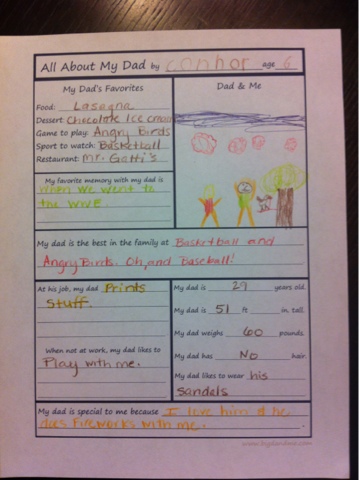 All About My Dad by connor age 6
My Dad's Favorites
Food: Lasagna
Dessert: Chocolate Ice cream
Game to play: Angry Birds
Sport to watch: Basketball
Restaurant: Mr. Gatti's
Dad & Me
My favorite memory with my dad is
when we went to
the WAVE.
My dad is the best in the family at Basketball and
Angry Birds. Oh, and Baseball!
At his job, my dad Prints
Stuff.
When not at work, my dad likes to
Play with me.
My dad is 29 years old.
My dad is 51 ft in. tall.
My dad weighs 60 pounds.
My dad has No hair.
My dad likes to wear his
sandels
My dad is special to me because I love him & he
does fireworks with me.
www.bigdandme.com